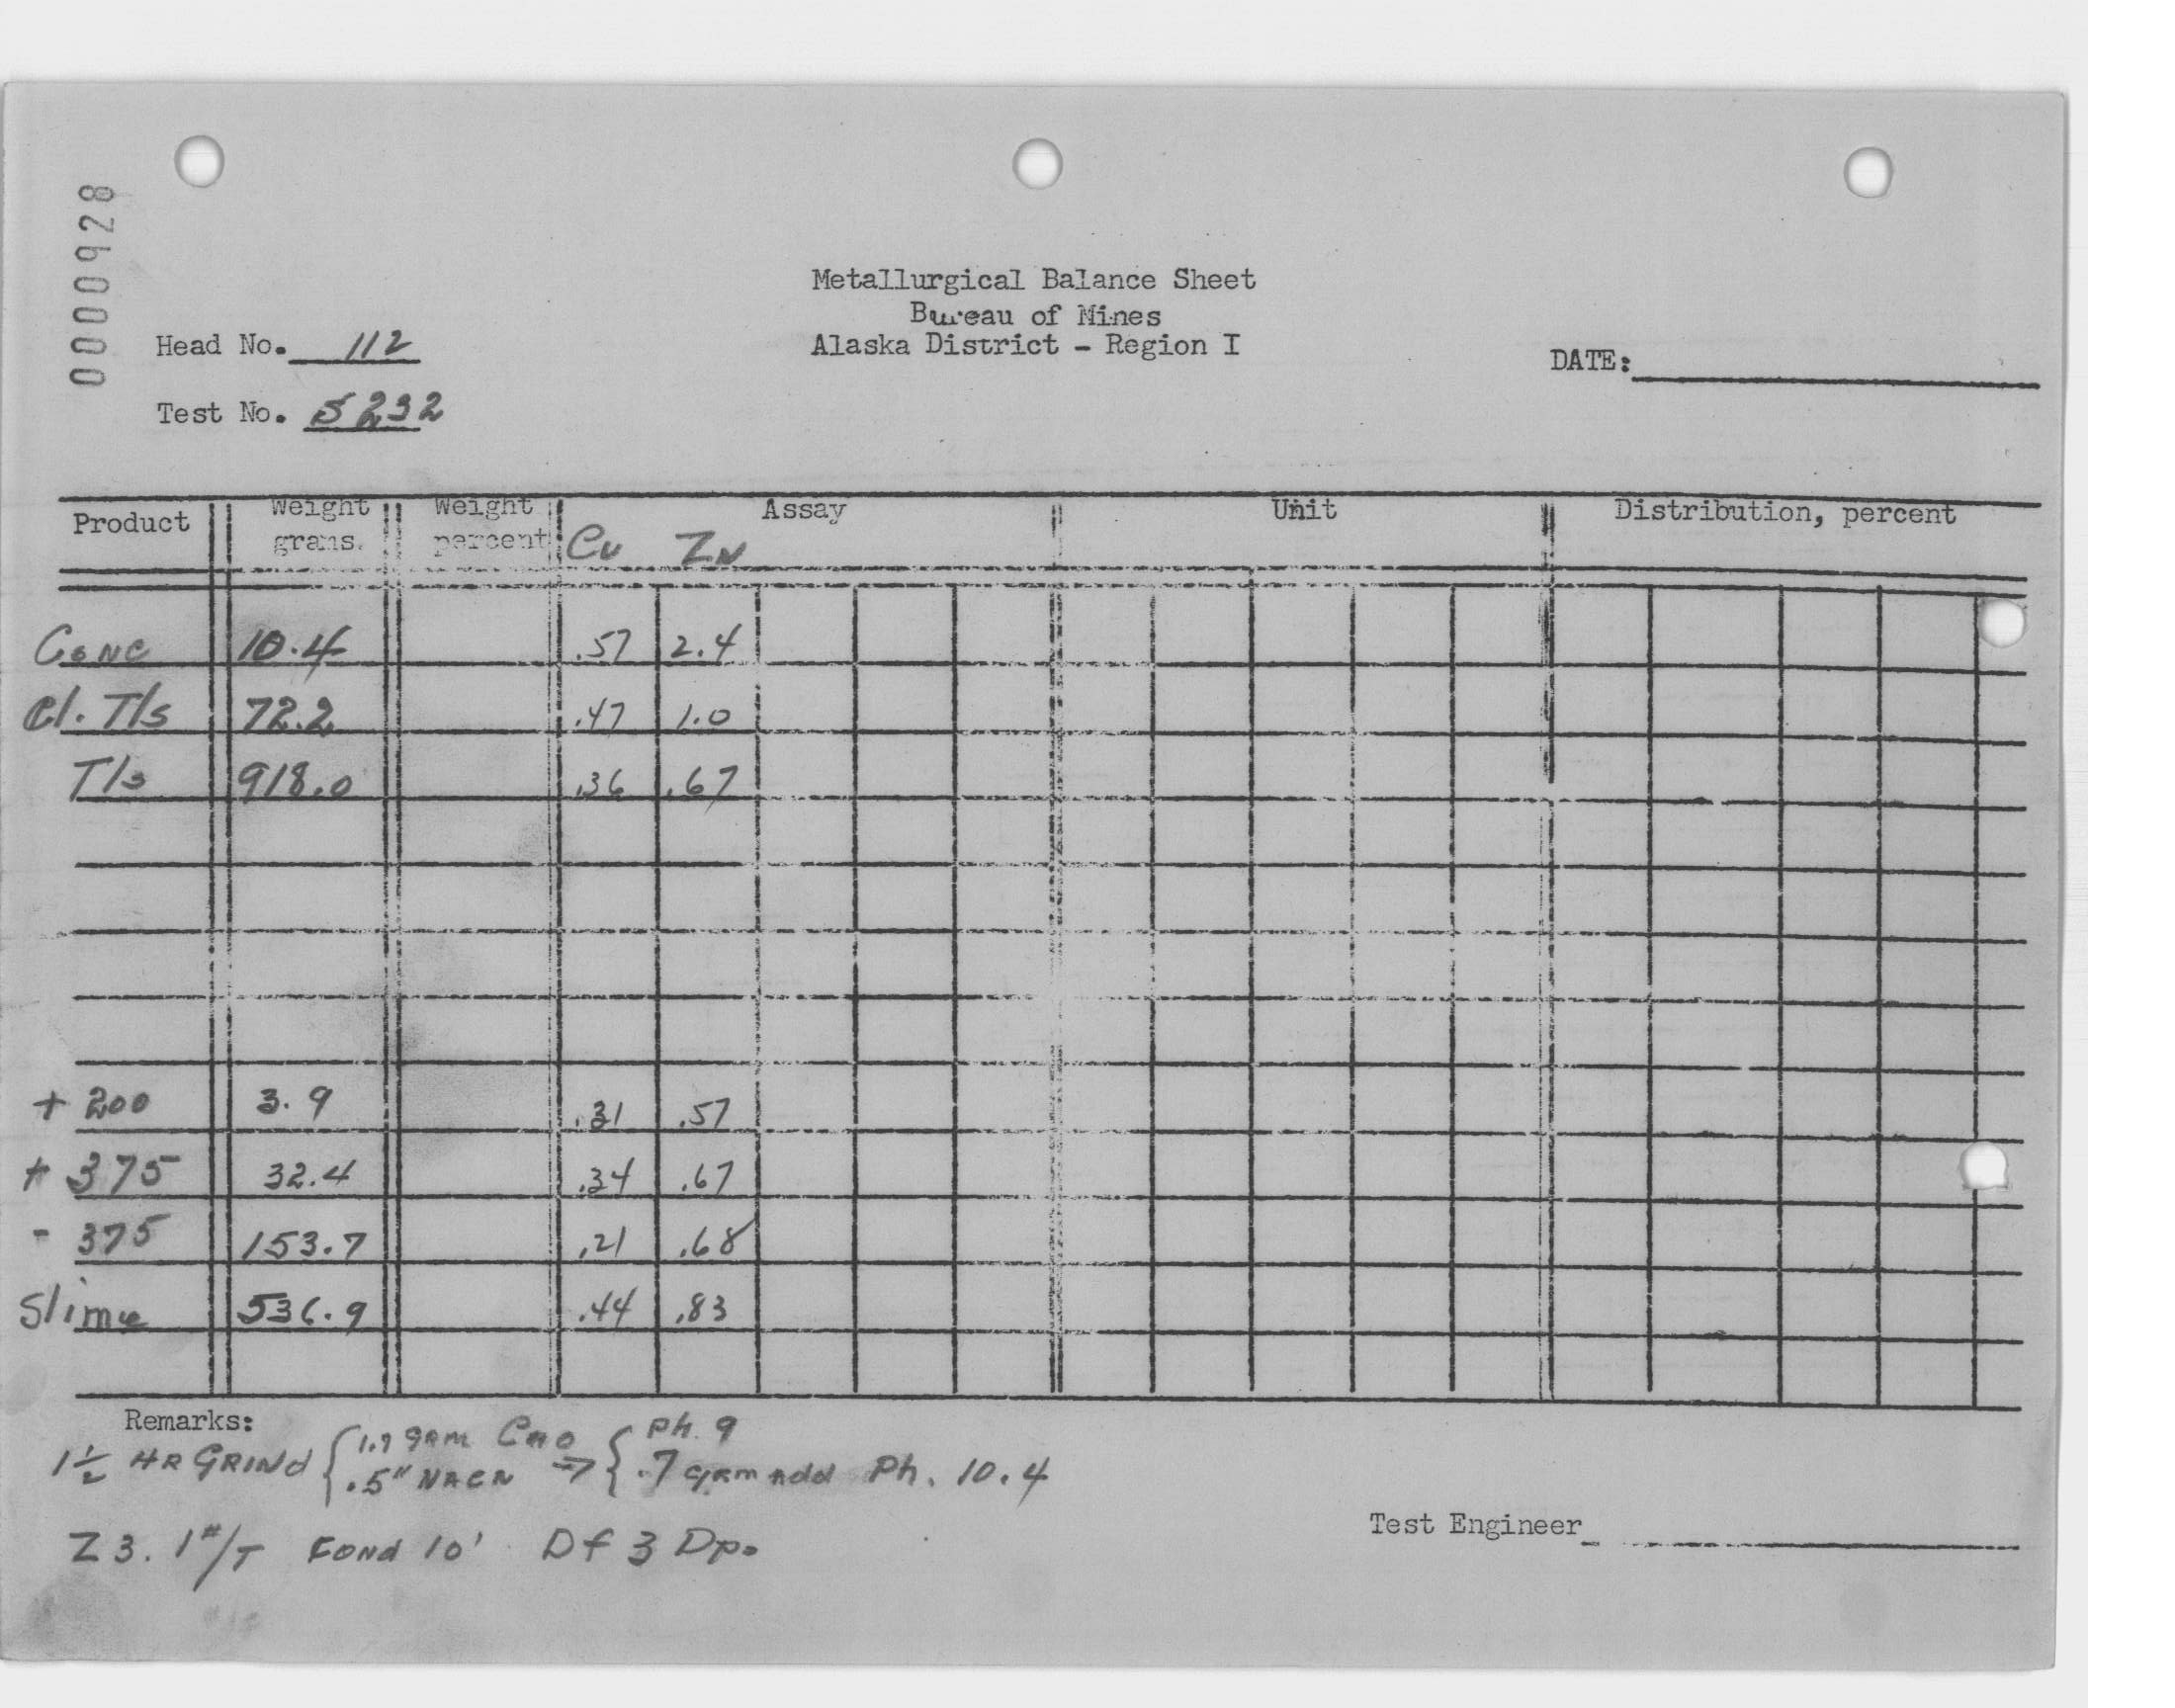 0000928
Metallurgical Balance Sheet
Bureau of Mines
Alaska District - Region I
Head No. 112
DATE:
Test No. S 232
Product Weight grams. Weight percent Assay Unit Distribution, percent
Cu Zn
Conc 10.4 .57 2.4
Cl. Tls 72.2 .47 1.0
Tls 918.0 .36 .67
+ 200 3.9 .31 .57
+ 375 32.4 .34 .67
- 375 153.7 .21 .68
Slime 536.9 .44 .83
Remarks:
1½ HR GRINd { 1.9 gRm CaO → { Ph. 9
.5" NACN .7 gRm Add Ph. 10.4
Z 3. 1#/T CONd 10' Df 3 Dp.
Test Engineer